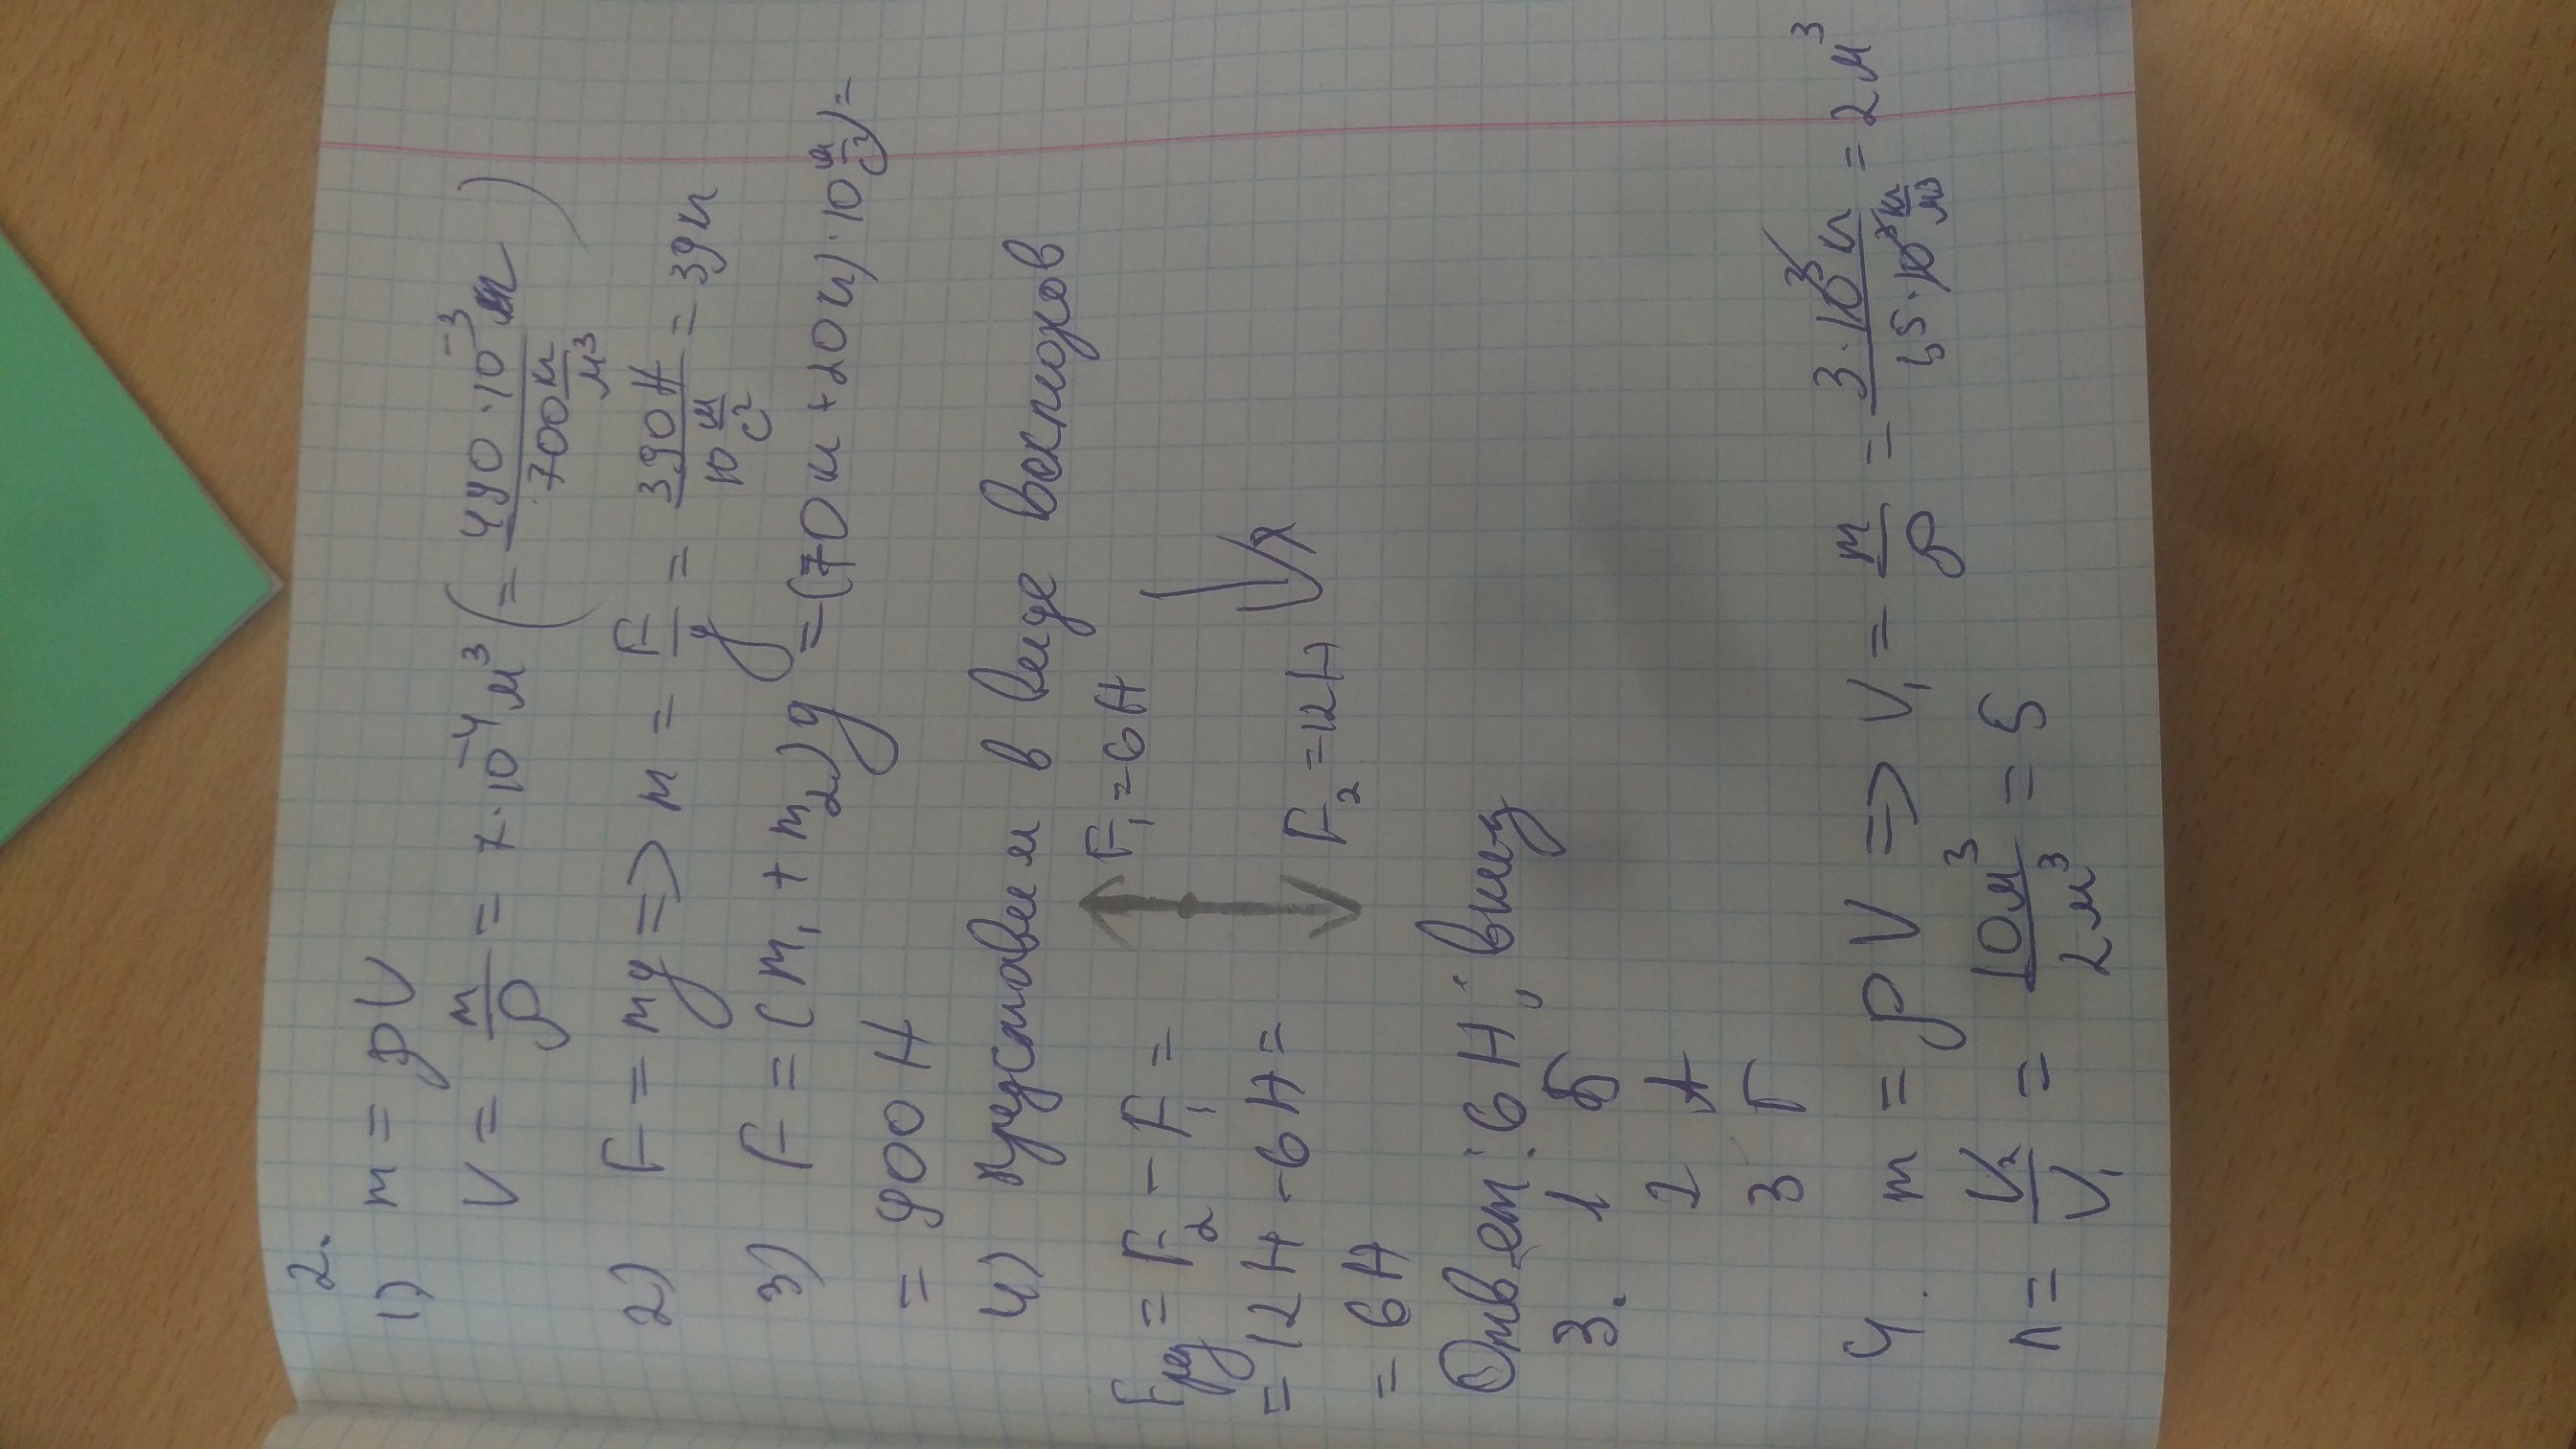 2.
1) m = ρV
V = m/ρ = 7·10⁻⁴ м³ ( = 490·10⁻³ кг / 700 кг/м³ )
2) F = mg => m = F/g = 390 Н / 10 м/с² = 39 кг
3) F = (m₁ + m₂)g = (70 кг + 20 кг)·10 м/с² =
= 900 Н
4) представим в виде векторов
F₁ = 6 Н
Fрез = F₂ - F₁ =
x
= 12 Н - 6 Н =
F₂ = 12 Н
= 6 Н
Ответ: 6 Н; вниз
3. 1 Б
2 А
3 Г
4. m = ρV => V₁ = m/ρ = 3·10³ кг / 1,5·10³ кг/м³ = 2 м³
n = V₂/V₁ = 10 м³ / 2 м³ = 5